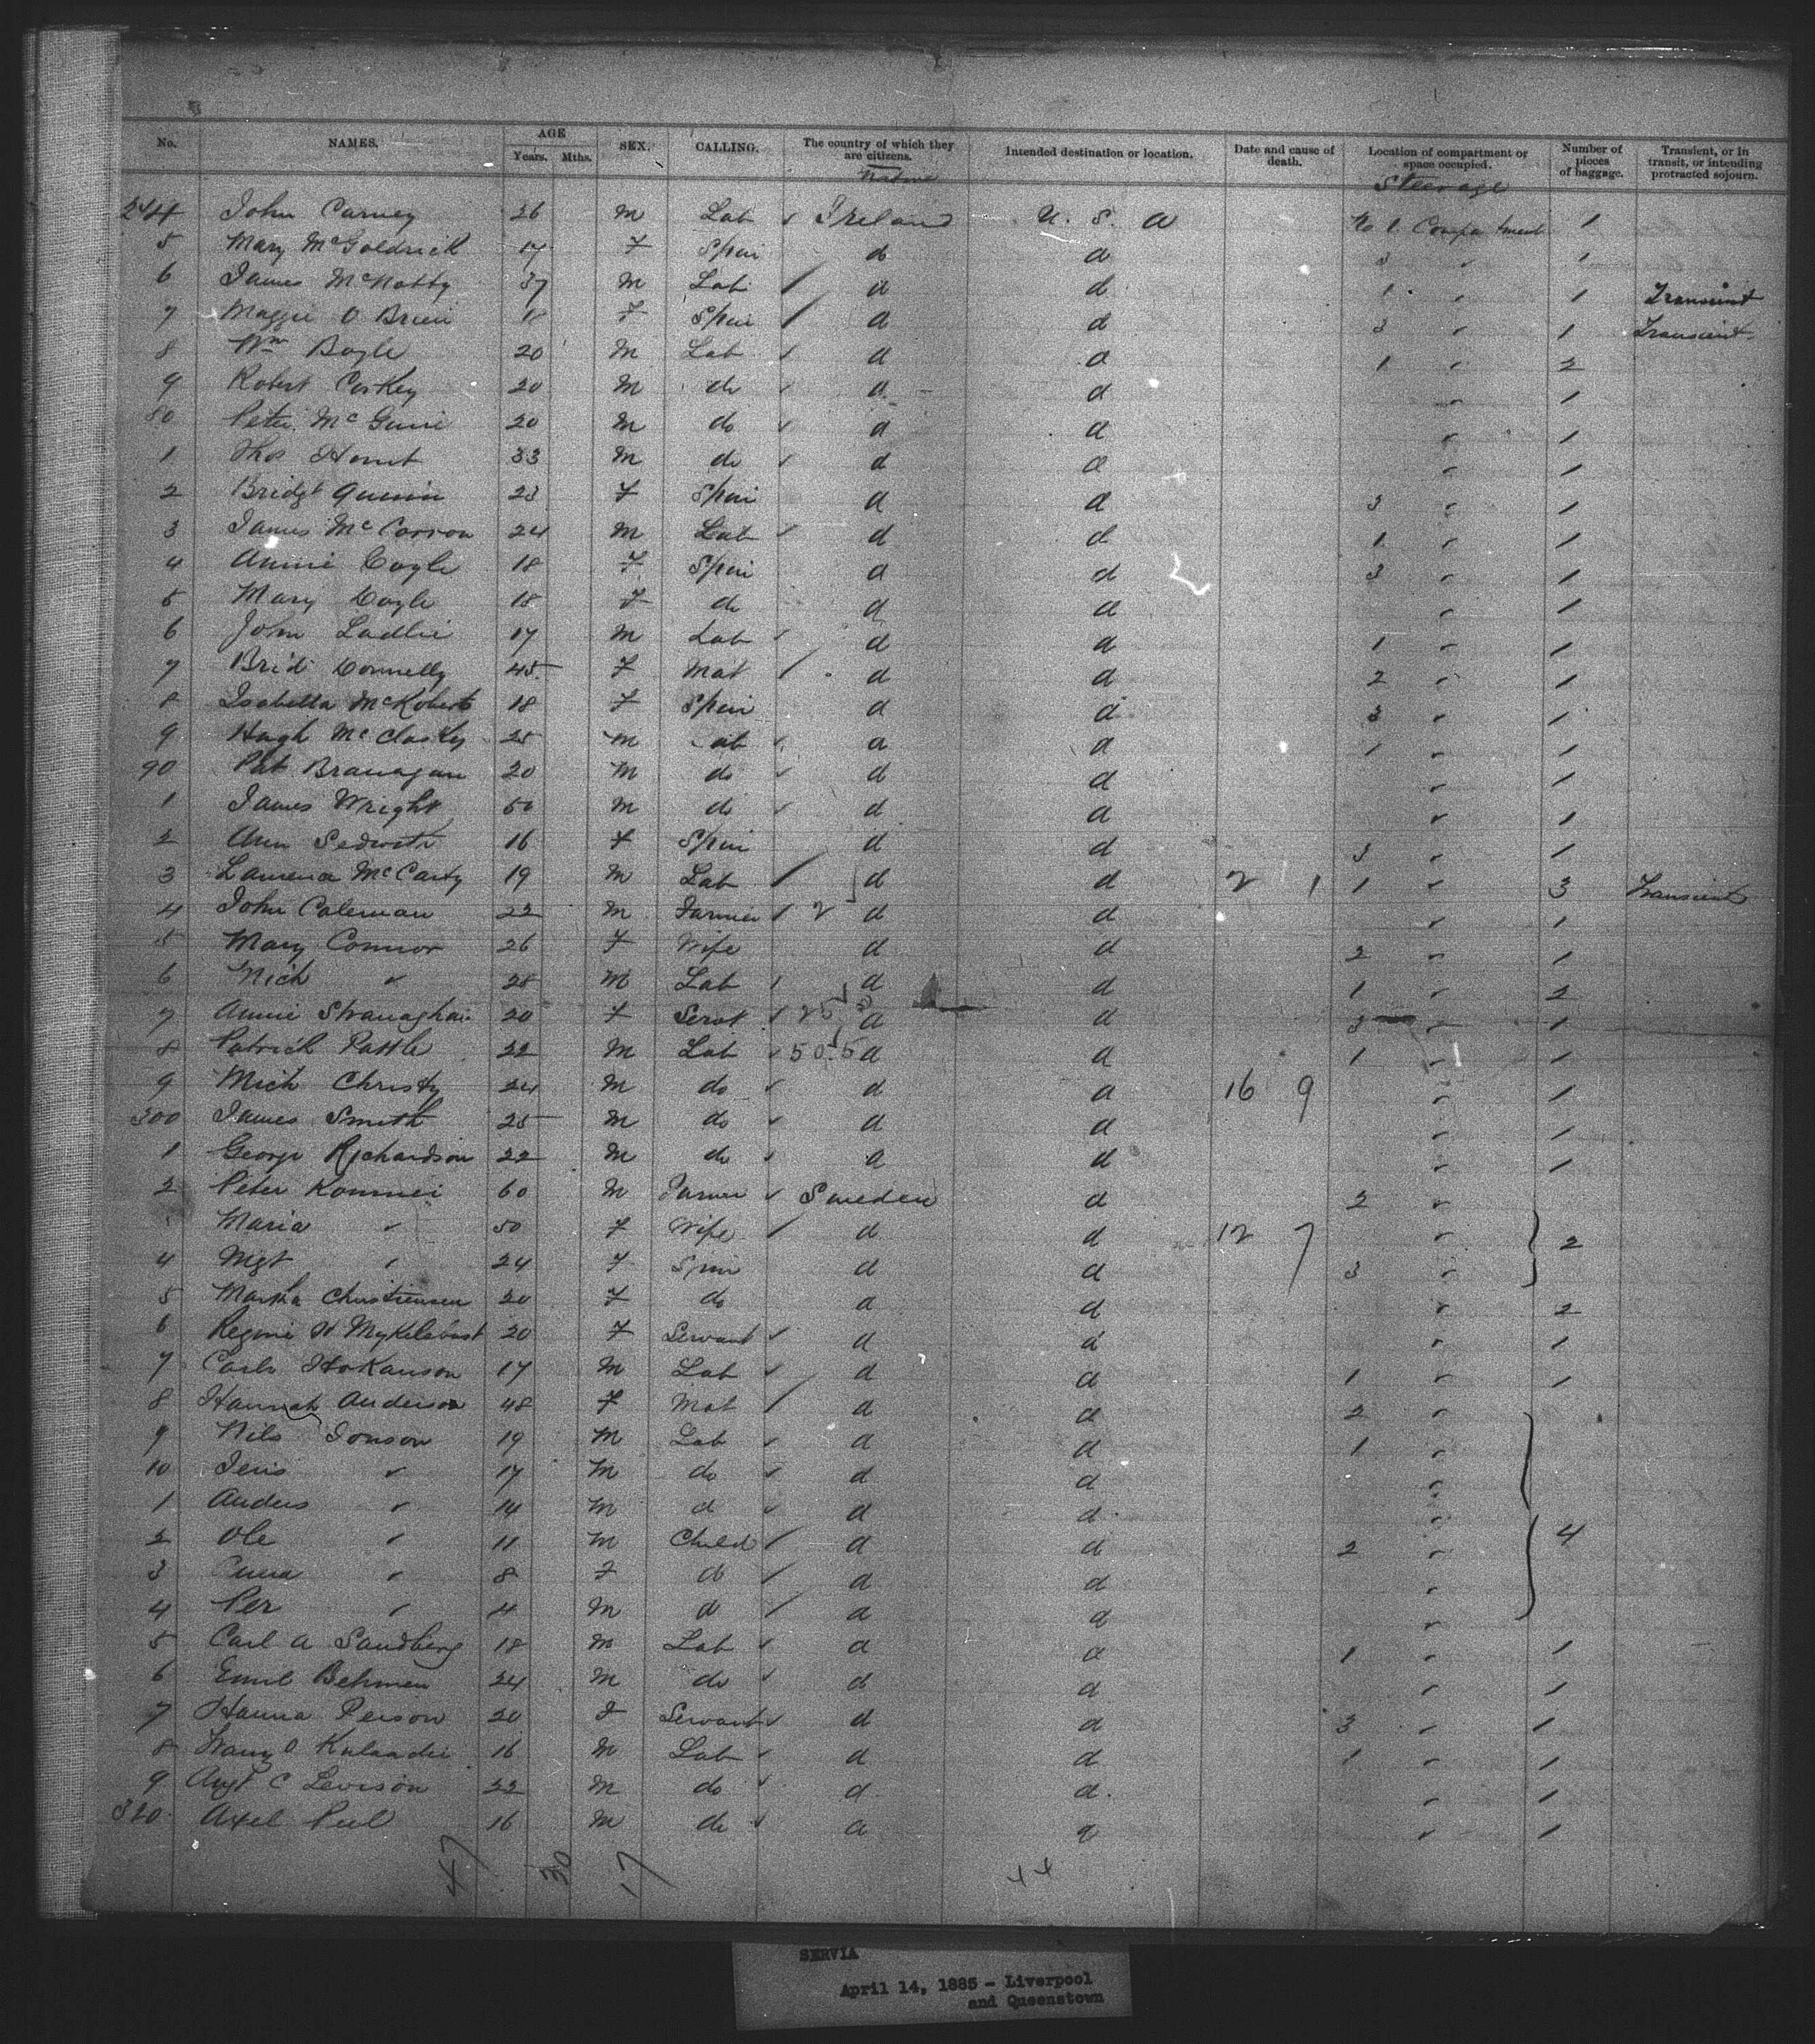 No. NAMES. AGE Years. Mths. SEX. CALLING. The country of which they are citizens. Intended destination or location. Date and cause of death. Location of compartment or space occupied. Number of pieces of baggage. Transient, or in transit, or intending protracted sojourn.
Native Steerage
John Carney 26 M Lab Ireland U. S. A No 1 Compartment 1
5 Mary McGoldrick 17 F Spin do d 3 " 1
6 James McNatty 37 M Lab d d 1 " 1 Transient
7 Maggie O Brien F Spin d d 3 " 1 Transient
8 Wm Boyle 20 M Lab d d 1 " 2
9 Robert Corkey 20 M do d d " 1
80 Peter McGuire 20 M do d d " 1
1 Thos Hount 33 M do d d " 1
2 Bridgt Quinn 23 F Spin d d 3 " 1
3 James McCarron 24 M Lab d d 1 " 1
4 Annie Coyle 18 F Spin d d 3 " 1
5 Mary Coyle 18 F do d d " 1
6 John Ladlie 17 M Lab d d 1 " 1
7 Brid Connelly 45 F Mat d d 2 " 1
8 Isabella McRoberts 18 F Spin d d 3 " 1
9 Hugh McClosky 25 M Lab d d 1 " 1
90 Pat Branagan 20 M do d d " 1
1 James Wright 50 M do d d " 1
2 Ann Sedwith 16 F Spin d d 3 " 1
3 Laurence McCarty 19 M Lab d d 2 1 1 " 3 Transient
4 John Coleman 22 M Farmer 2 d d " 1
5 Mary Connor 26 F Wife d d 2 " 1
6 Mich " 28 M Lab d d 1 " 2
7 Annie Stranaghan 20 F Servt d d 3 " 1
8 Patrick Pattle 22 M Lab d d 1 " 1
9 Mich Christy 24 M do d d 16 9 " 1
300 James Smith 25 M do d d " 1
1 George Richardson 22 M do d d " 1
2 Peter Kommei 60 M Farmer Sweden d 2 "
Maria " 50 F Wife d d 12 7 " 2
4 Mgt " 24 F Spin d d 3 "
5 Martha Christiensen 20 F do d d " 2
6 Regine 20 F Servant d d " 1
7 Carlo Hokanson 17 M Lab d d 1 " 1
8 Hannah Anderson 48 F Mat d d 2 "
9 Nils Jonson 19 M Lab d d 1 "
10 Jens " 17 M do d d "
1 Anders " 14 M d d d "
2 Ole " 11 M Child d d 2 " 4
3 Anna " 8 F d d d "
4 Per " 4 M d d d "
5 Carl A Sandberg 18 M Lab d d 1 " 1
6 Emil Behmen 24 M do d d " 1
7 Hanna Person 20 F Servant d d 3 " 1
8 16 M Lab d d 1 " 1
9 Augt C Levison 22 M do d d " 1
320 Axel Peel 16 M do d d " 1
47 30 17 44
SERVIA
April 14, 1885 - Liverpool
and Queenstown